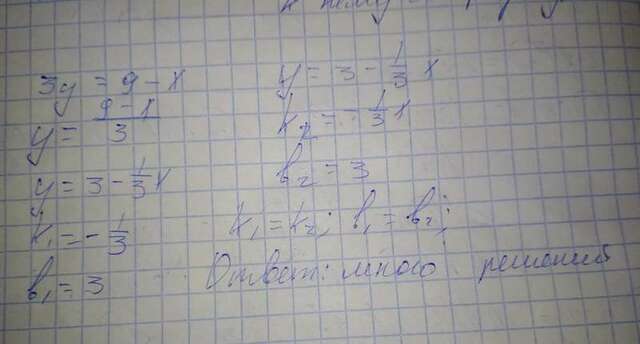 3y = 9 - x
y = (9 - x)/3
y = 3 - 1/3 x
k₁ = - 1/3
b₁ = 3
y = 3 - 1/3 x
k₂ = - 1/3 x
b₂ = 3
k₁ = k₂; b₁ = b₂;
Ответ: много решений